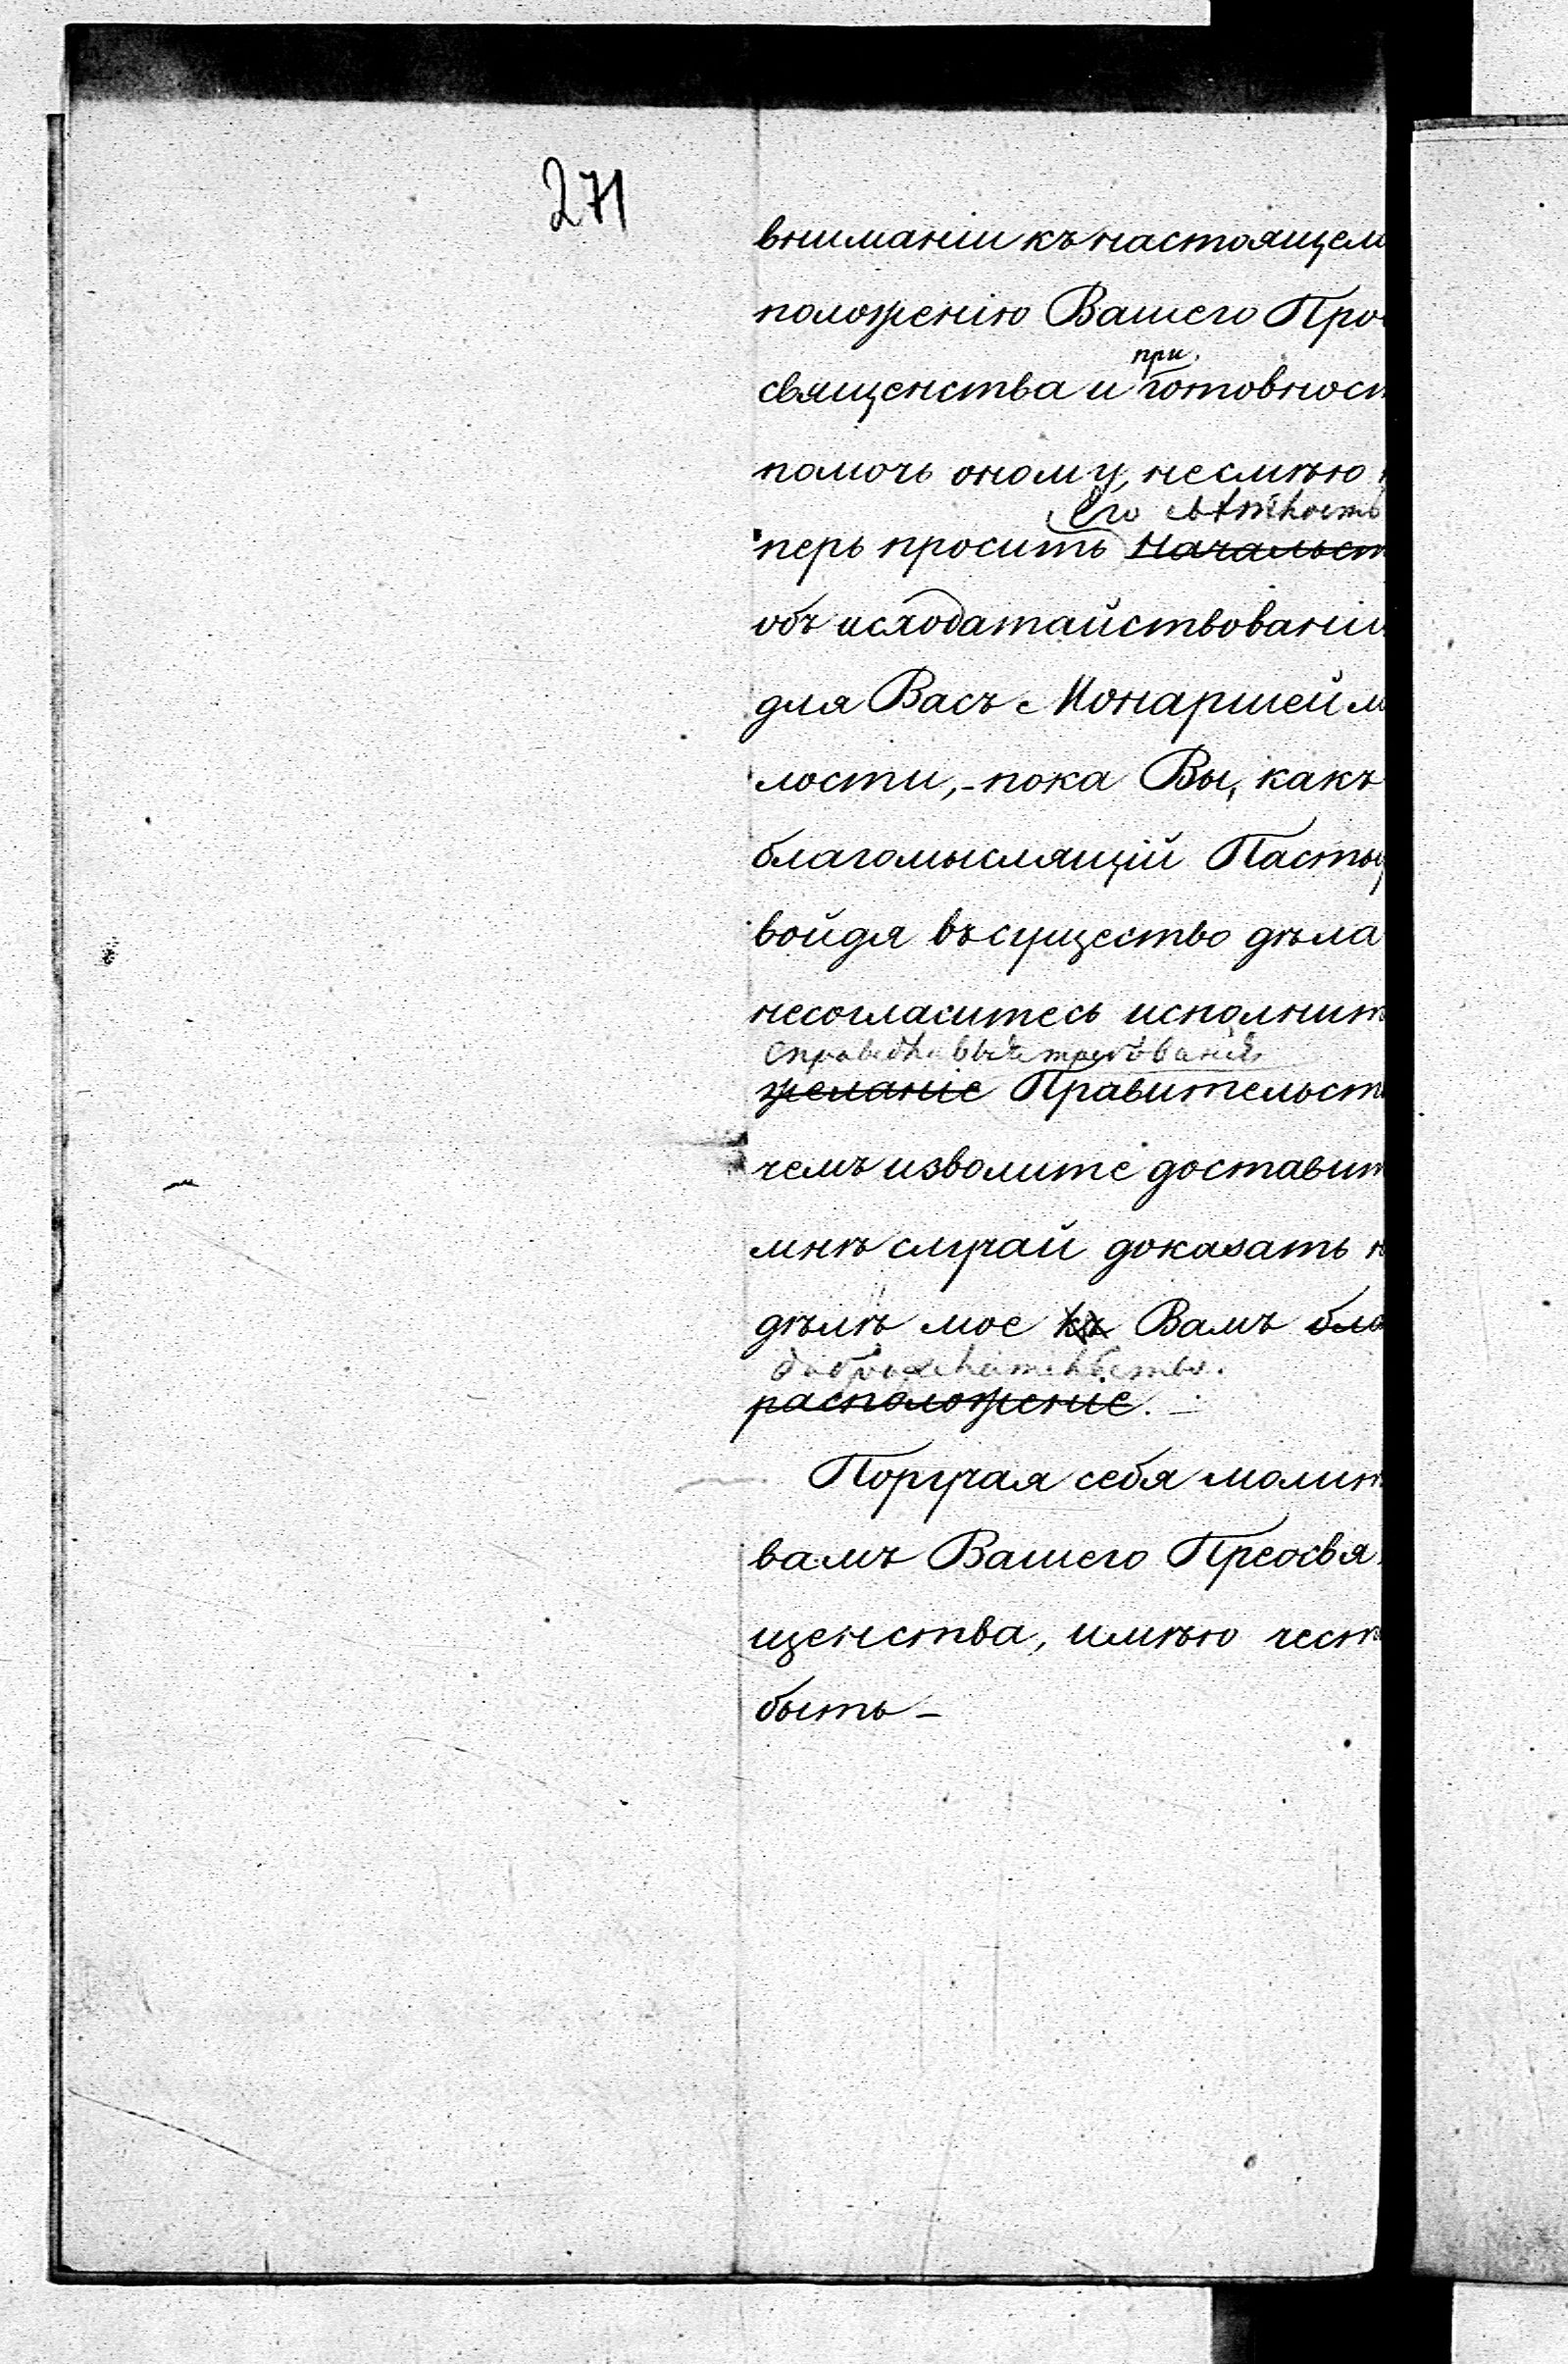 271
вниманіи къ настоящем
положенію Вашего Прео
при
священства и готовност
помочь оному, несмѣю
Его Свѣтлость
перь просить Начальст
объ исходатайствованіи
для Васъ Монаршей м
лости,-пока Вы, какъ
благомыслящій Пасты
войдя въ существо дѣла
несогласитесь исполнит
справедливыя требованія
желаніе Правительст
чемъ изволите доставит
мнѣ случай доказать н
дѣлѣ мое къ Вамъ бла
доброжелательство.
расположеніе.
Поручая себя молит
вамъ Вашего Преосвя
щенства, имѣю чест
быть-